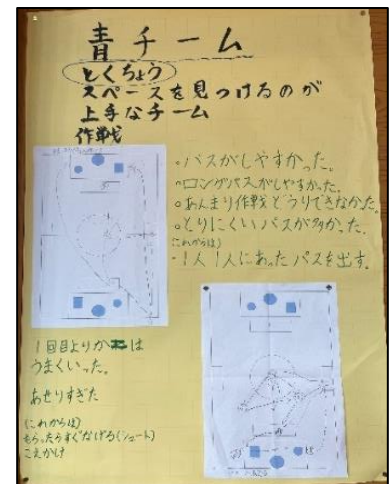 青チーム
とくちょう
スペースを見つけるのが
上手なチーム
作戦
・パスがしやすかった。
・ロングパスがしやすかった。
・あんまり作戦どうりできなかった。
・とりにくいパスが多かった。
(これからは)
・1人1人にあったパスを出す。
1回目よりかは
うまくいった。
あせりすぎた
(これからは)
もらったらすぐなげる(シュート)
こえかけ